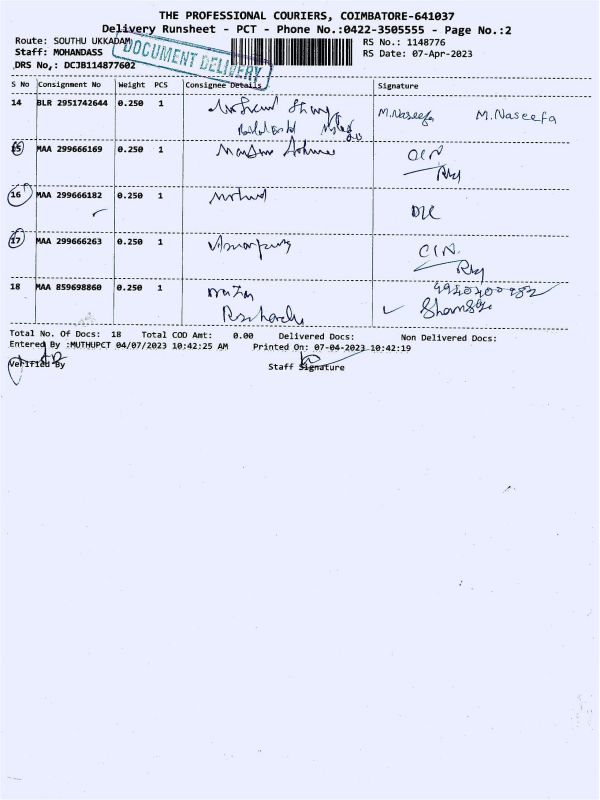 THE PROFESSIONAL COURIERS, COIMBATORE-641037
Delivery Runsheet - PCT - Phone No.:0422-3505555 - Page No.:2
Route: SOUTHU UKKADAM
RS No.: 1148776
Staff: MOHANDASS
RS Date: 07-Apr-2023
DRS No,: DCJB114877602
DOCUMENT DELIVERY
S No Consignment No Weight PCS Consignee Details Signature
14 BLR 2951742644 0.250 1 M.Naseefa M.Naseefa
15 MAA 299666169 0.250 1
16 MAA 299666182 0.250 1
17 MAA 299666263 0.250 1
18 MAA 859698860 0.250 1
Total No. Of Docs: 18 Total COD Amt: 0.00 Delivered Docs: Non Delivered Docs:
Entered By :MUTHUPCT 04/07/2023 10:42:25 AM Printed On: 07-04-2023 10:42:19
Verified By Staff Signature